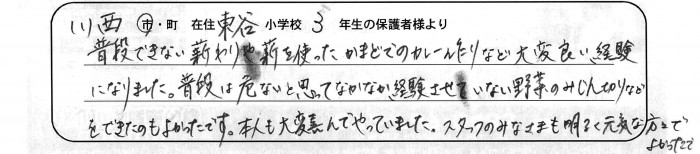 (1) 西 市・町 在住 東谷 小学校 3 年生の保護者様より
普段できない薪わりや薪を使ったかまどでのカレー作りなど大変良い経験
になりました。普段は危ないと思ってなかなか経験させていない野菜のみじん切りなど
をできたのもよかったです。本人も大変喜んでやっていました。スタッフのみなさまも明るく元気な方々で
よかったです